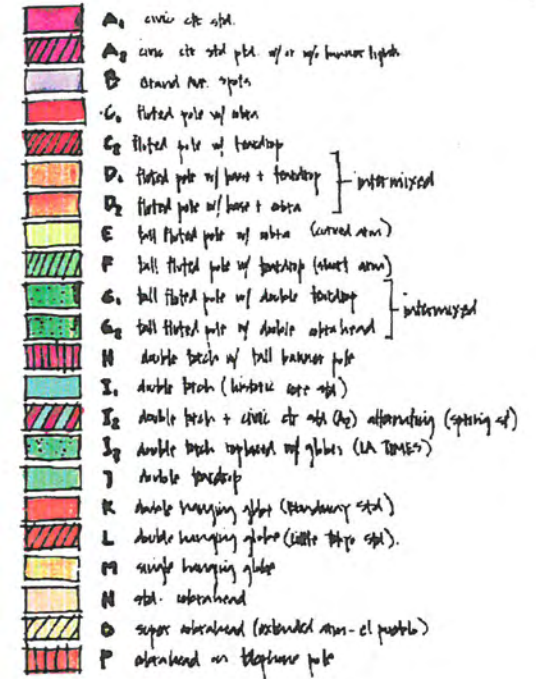 A1 civic ctr std.
A2 civic ctr std ptd. w/ or w/o banner lights
B Grand Ave. spots
C1 fluted pole w/ cobra
C2 fluted pole w/ teardrop
D1 fluted pole w/ base + teardrop
D2 fluted pole w/ base + cobra
intermixed
E tall fluted pole w/ cobra (curved arm)
F tall fluted pole w/ teardrop (short arm)
G1 tall fluted pole w/ double teardrop
G2 tall fluted pole w/ double cobrahead
intermixed
H double torch w/ tall banner pole
I1 double torch (historic core std)
I2 double torch + civic ctr std (A2) alternating (spring st)
I3 double torch replaced w/ globes (LA TIMES)
J double teardrop
K double hanging globe (Broadway std)
L double hanging globe (Little Tokyo std).
M single hanging globe
N std. cobrahead
O super cobrahead (extended arm - el pueblo)
P cobrahead on telephone pole